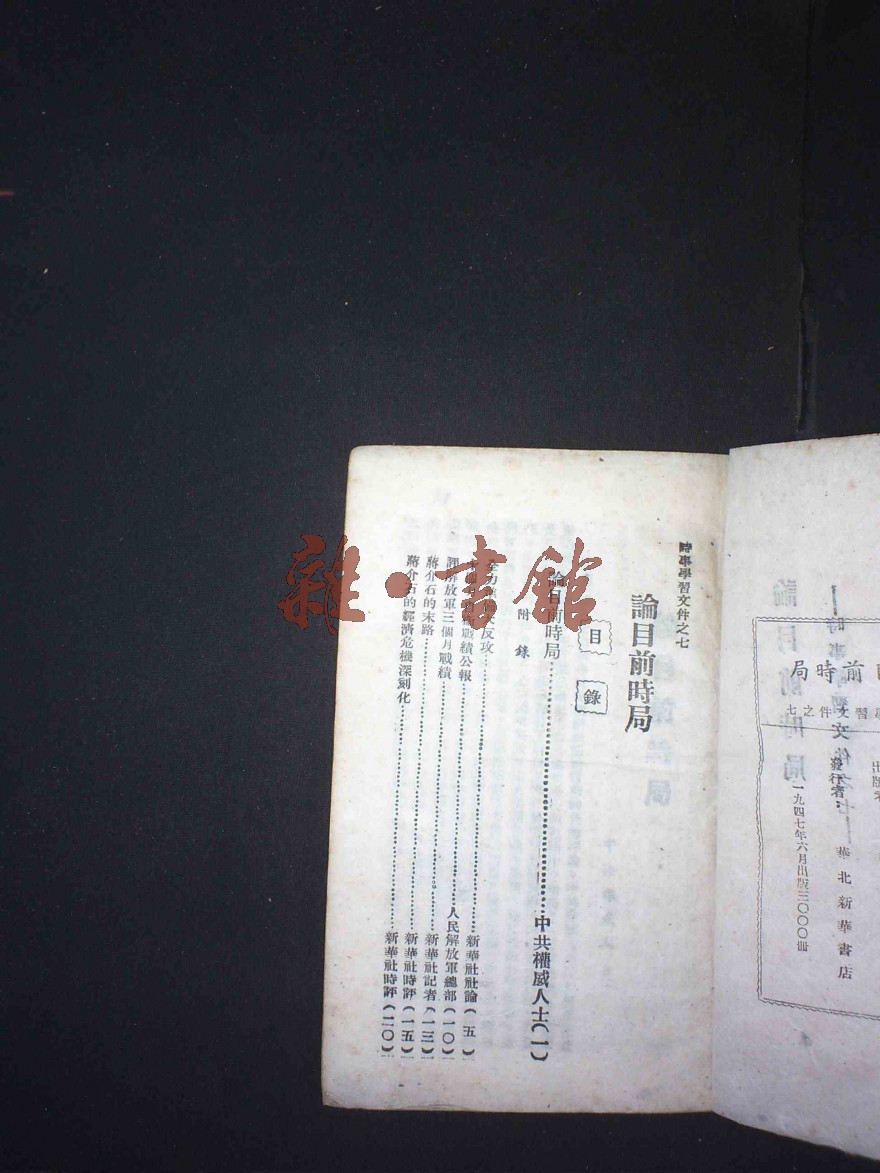 前時局
習文件之七
發行者：華北新華書店
一九四七年六月出版三〇〇〇冊
時事學習文件之七
論目前時局
目錄
論目前時局……中共權威人士（一）
附錄
全力反攻……新華社社論（五）
戰績公報……人民解放軍總部（一〇）
評解放軍三個月戰績……新華社記者（一三）
蔣介石的末路……新華社時評（一五）
蔣介石的經濟危機深刻化……新華社時評（二〇）
雜·書館